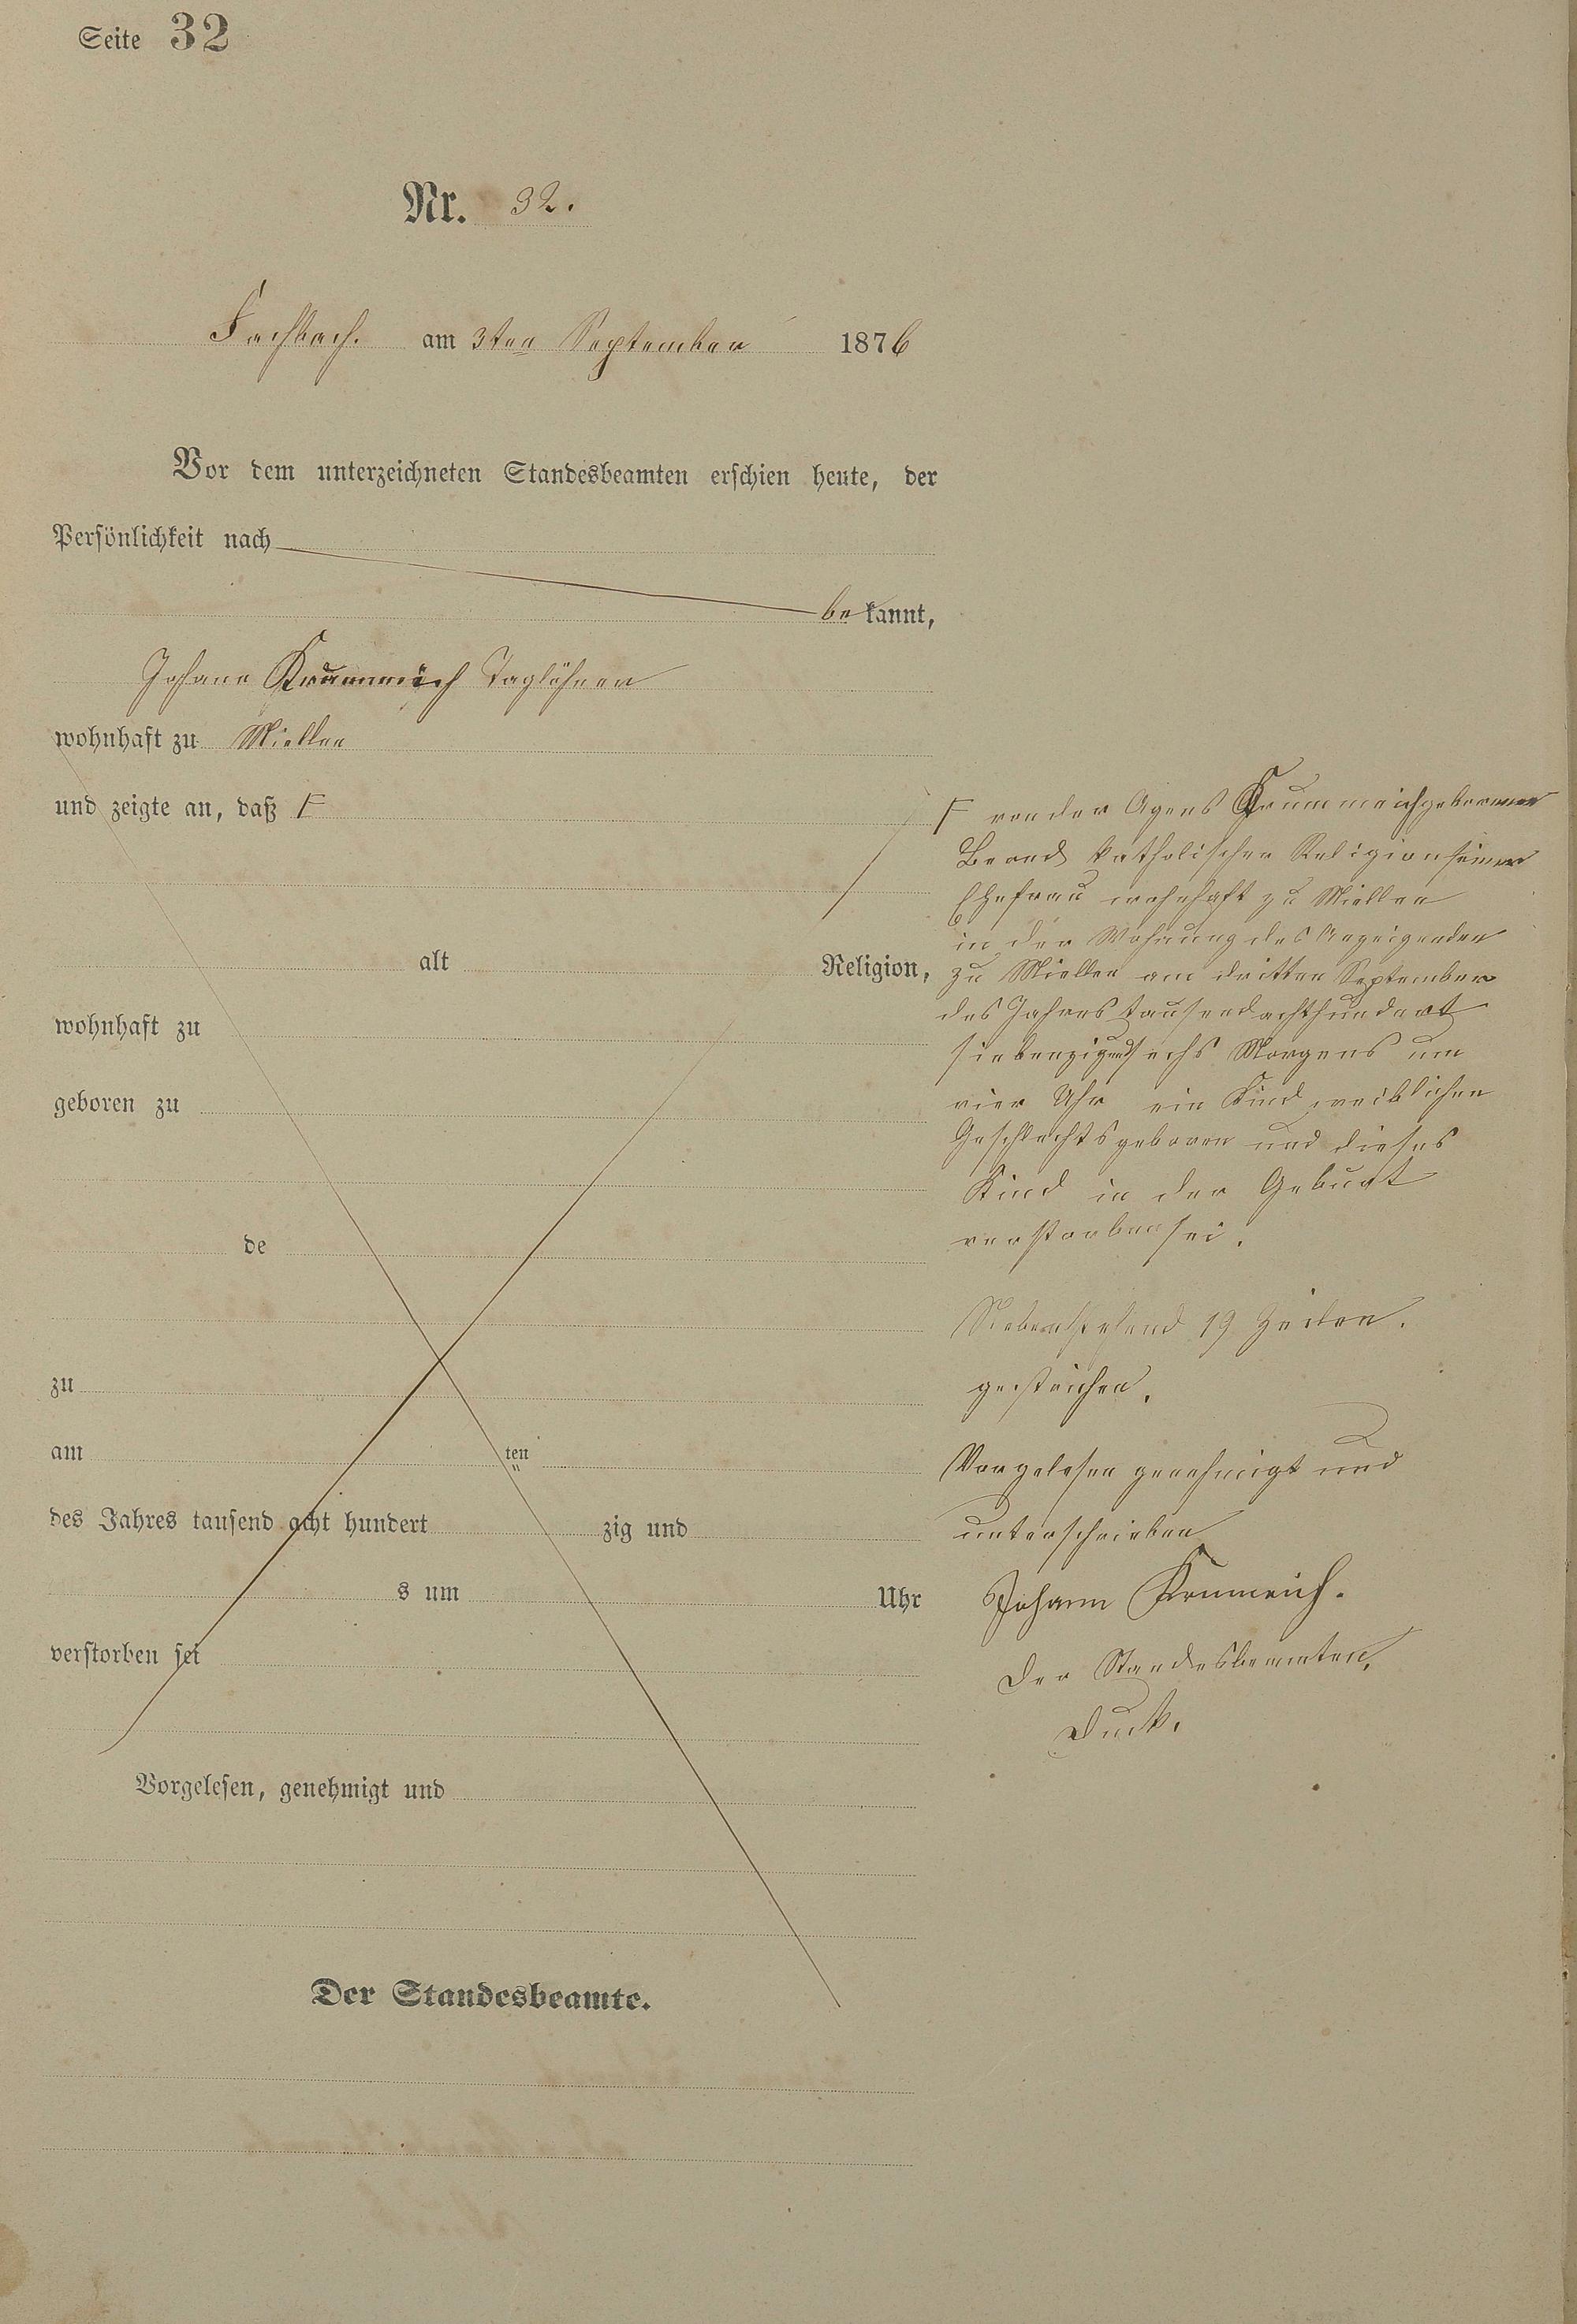 Seite 32
Nr. 32.
Fachbach. am 3ten September 1876
Vor dem unterzeichneten Standesbeamten erschien heute, der
Persönlichkeit nach
bekannt,
Johann Krummeich Taglöhner
wohnhaft zu Miellen
und zeigte an, daß F
alt Religion,
wohnhaft zu
geboren zu
de
zu
am ten
des Jahres tausend acht hundert zig und
s um Uhr
verstorben sei
Vorgelesen, genehmigt und
Der Standesbeamte.
F von der Agnes Krummeich geborenen
katholischer Religion seiner
Ehefrau wohnhaft zu Miellen
in der Wohnung des Anzeigenden
zu Miellen am dritten September
des Jahres tausend achthundert
siebenzig und sechs Morgens um
vier Uhr ein Kind weiblichen
Geschlechts geboren und dieses
Kind in der Geburt
verstorben sei.
Nebenstehend 19 Zeilen.
gestrichen.
Vorgelesen genehmigt und
unterschrieben
Johann Krumeich.
Der Standesbeamten,
Duck.